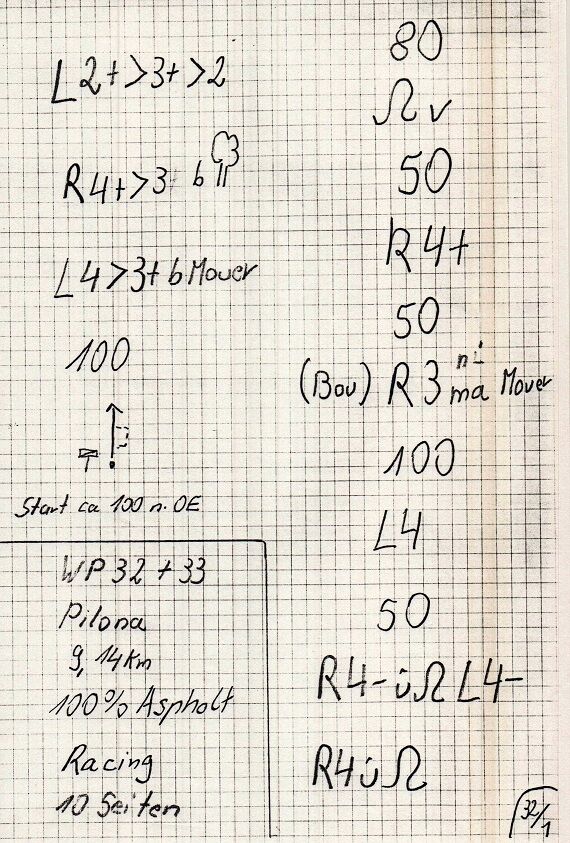 L2+>3+>2
R4+>3 b
L4>3+ b Mauer
100
Start ca 100 n. OE
WP 32 + 33
Pilona
9,14 Km
100% Asphalt
Racing
10 Seiten
80
Ω v
50
R4+
50
(Bou) R3 ni ma Mauer
100
L4
50
R4- ü Ω L4-
R4 ü Ω
32/1